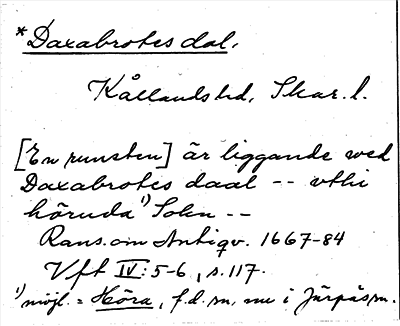 *Daxabrotes dal.
Kållands hd, Skar. l.
[En runsten] är liggande wed
Daxabrotes daal -- vthi
höruda¹⁾ Sokn --
Rans. om Antiqv. 1667-84
Vft IV: 5-6, s. 117.
¹⁾ möjl. = Höra, f.d. sn, nu i Järpås sn.